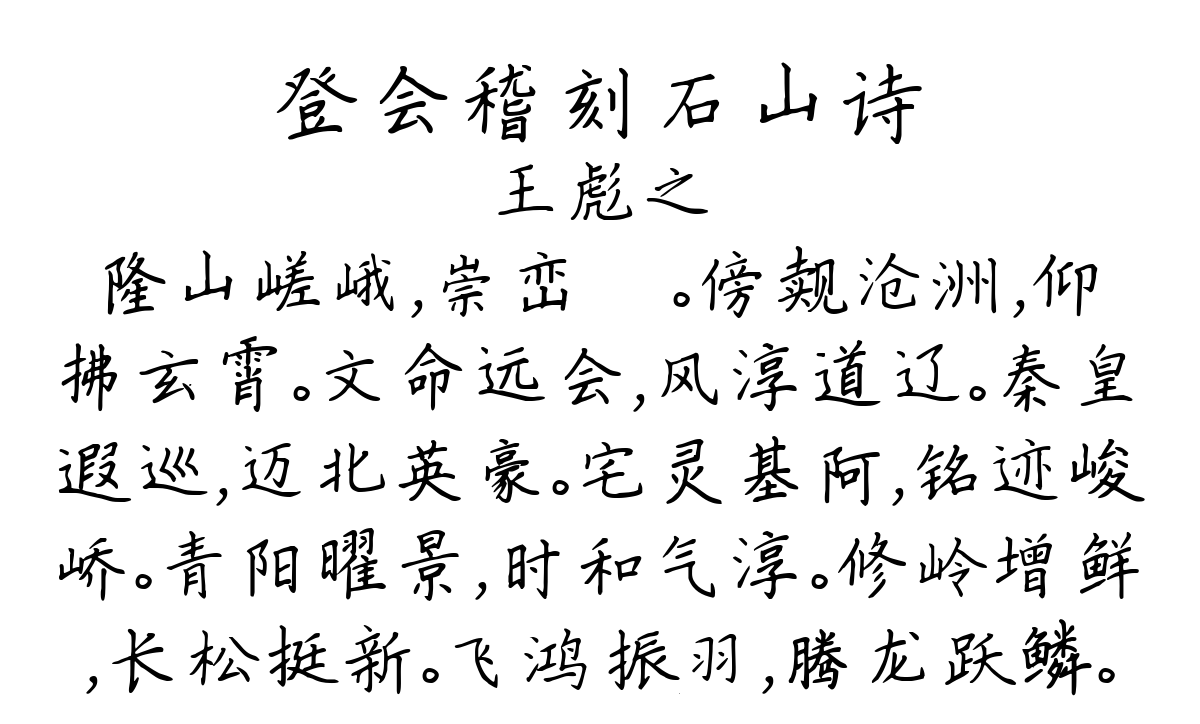 登会稽刻石山诗
王彪之
隆山嵯峨,崇峦　。傍觌沧洲,仰
拂玄霄。文命远会,风淳道辽。秦皇
遐巡,迈北英豪。宅灵基阿,铭迹峻
峤。青阳曜景,时和气淳。修岭增鲜
,长松挺新。飞鸿振羽,腾龙跃鳞。